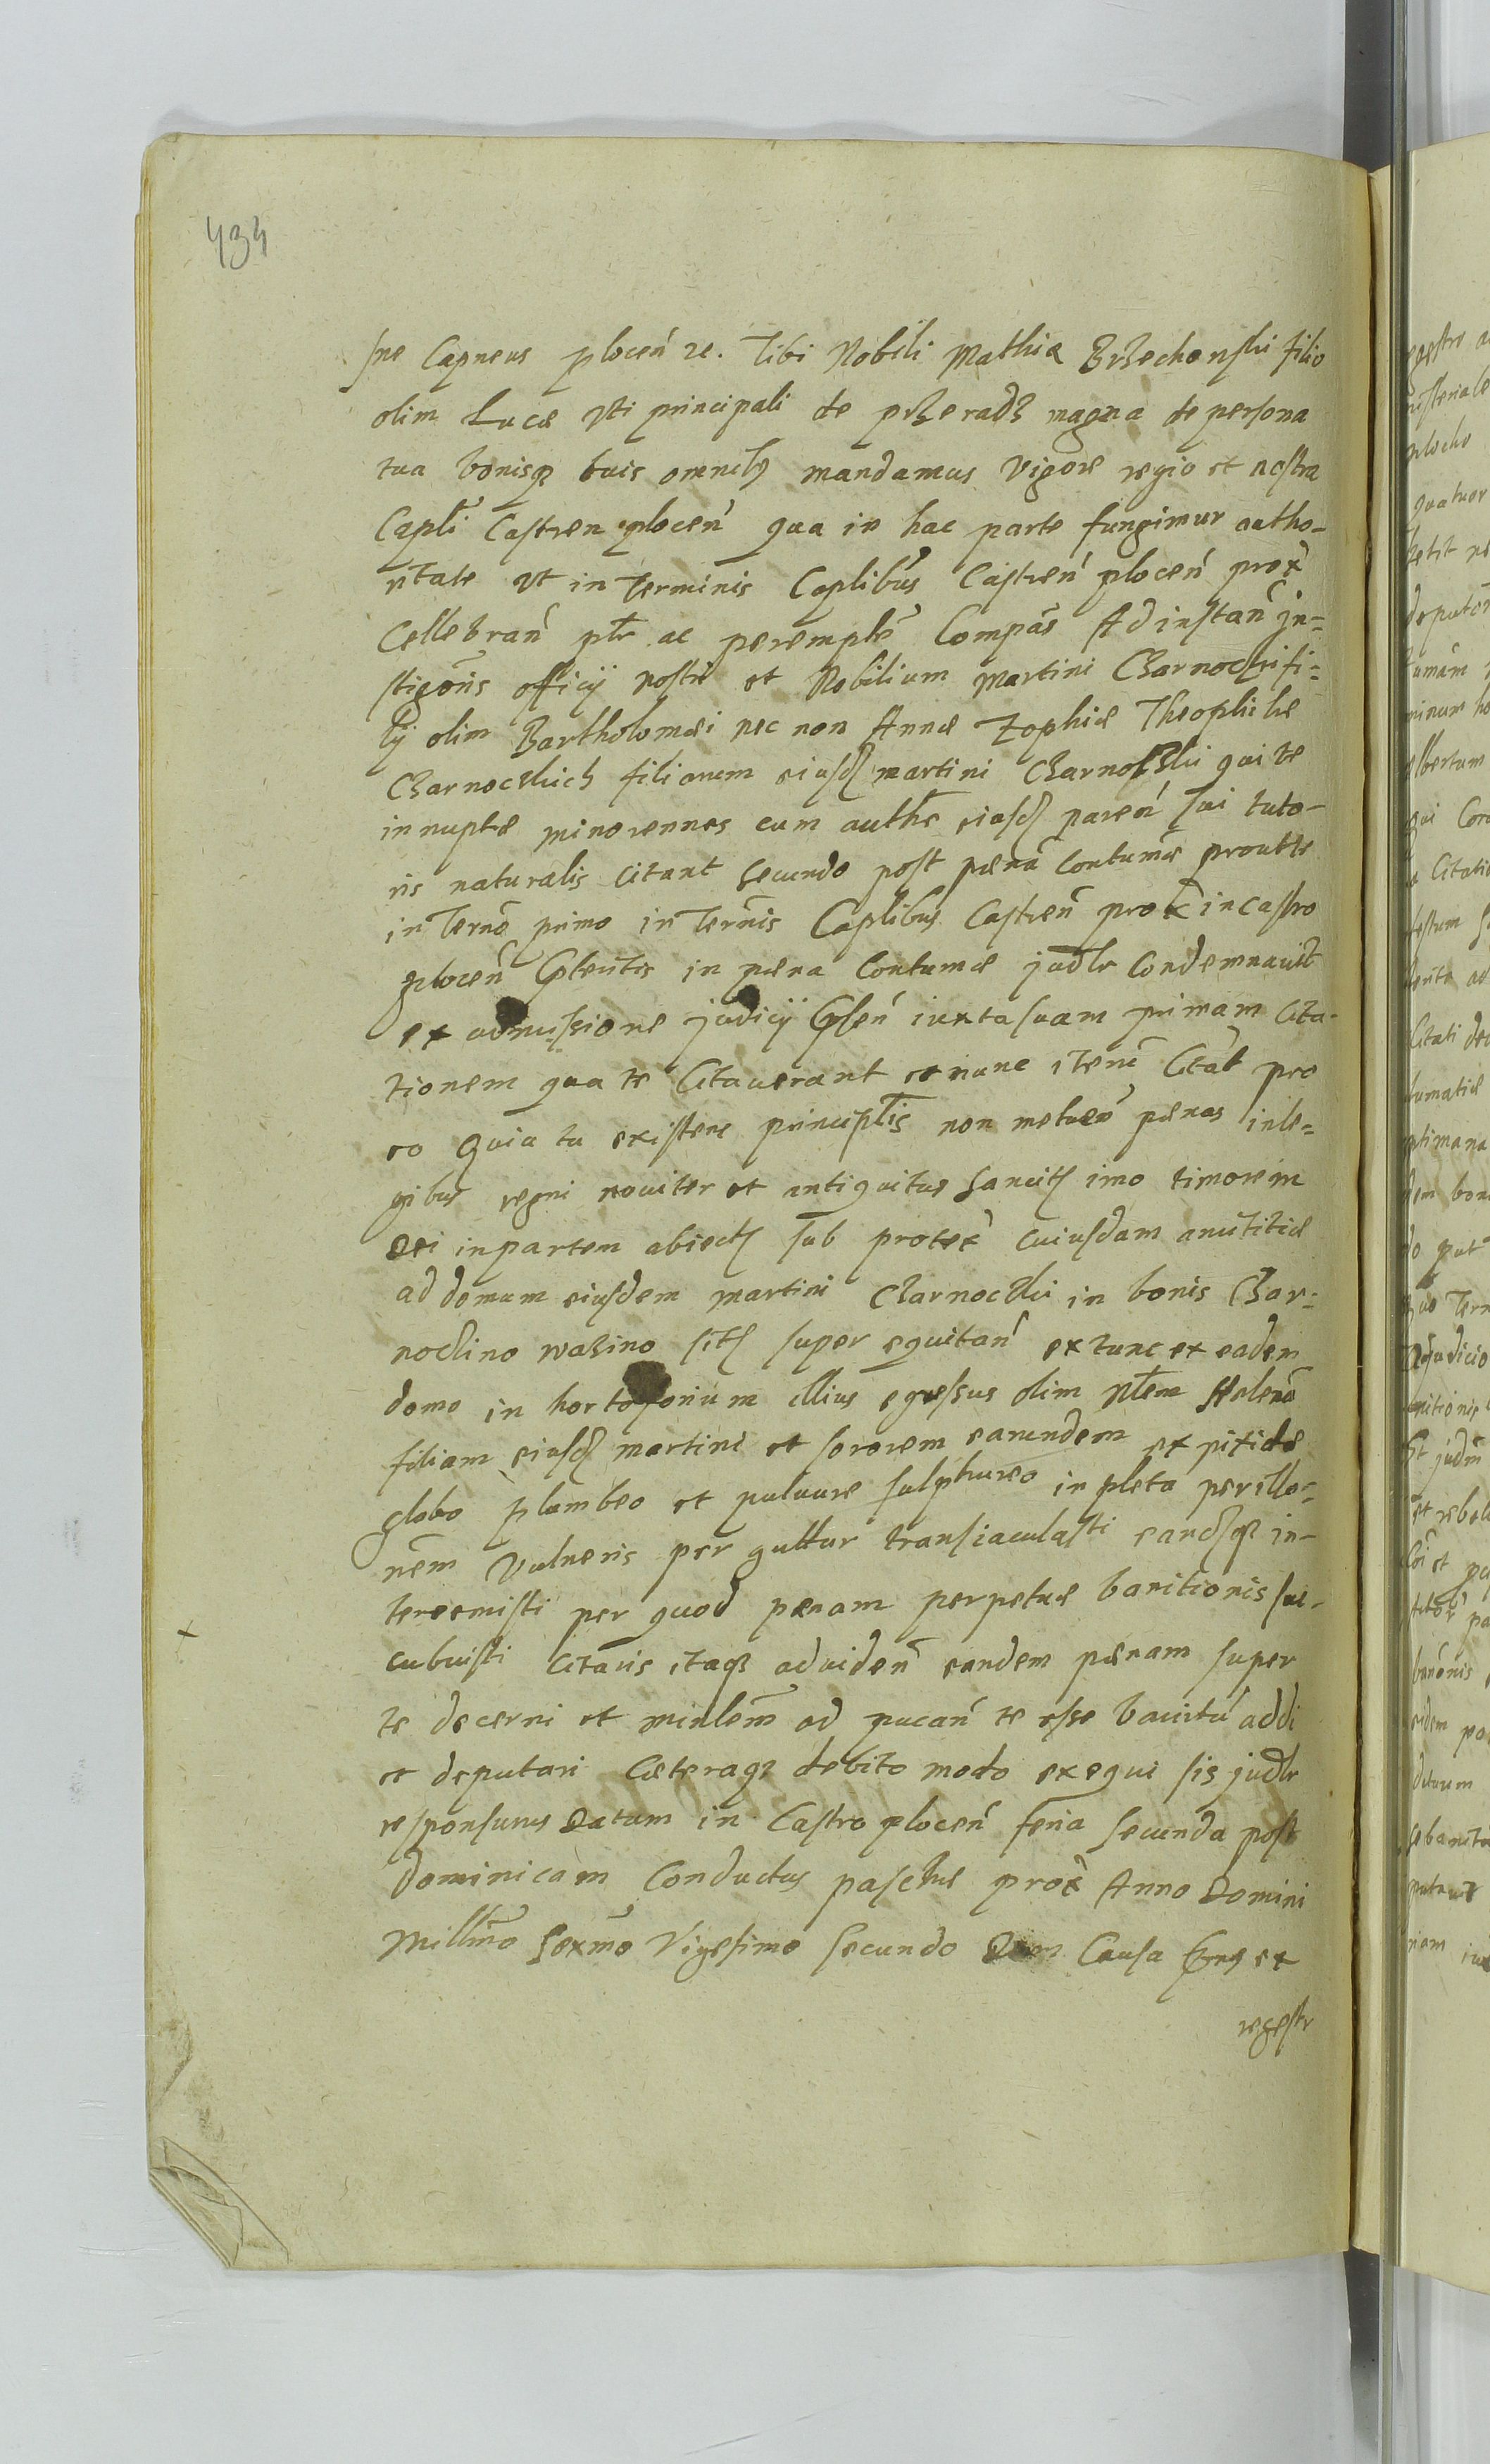 434
sne Capneus plocen̄ rc. Tibi Nobili Mathiæ Brzechonski filio
olim Lucæ uti principali de przeradz magna de persona
tua bonisq3 tuis omnib9 mandamus vigore regio et nostra
Capli Castren plocen̄ qua in hac parte fungimur autho-
ritate ut in Terminis Caplibus Castren̄ plocen̄ prox
Cellebran̄ plr ac perempte Compās Ad instan̄ jn=
stigōnis officij nostri et Nobilium Martini Charnoczki fi=
lij olim Bartholomæi nec non Annæ Zophiæ Theophilæ
Charnoczkich filiarum eiusd martini Charnoczki qui te
innuptæ minorennes cum auths eiusd paren̄ sui tuto-
ris naturalis citant secundo post pænā Contumæ prout te
in Termō primo in Termis Caplibus Castren̄ prox in castro
plocen̄ in pæna Contumæ judlr Condemnauit
ex admissione judicij iuxta suam primam Cita-
tionem qua te Citauerant et nunc itenē Citāt pro
eo Quia tu existens principlis non metuen̄ pænas in le=
gibus regni nouiter et antiquitus sancitis imo timorem
Dei in partem abiecto sub protex cuiusdam amititiæ
ad domum eiusdem Martini Charnoczki in bonis Char=
noczino wasino sitis super equitan̄ ex tunc ex eadem
domo in hortosorium illius egressus olim Nlem Halenā
filiam eiusd martini et sororem earundem ex pixide
globo plumbeo et puluure sulphureo inpleta per illa=
nem vulneris per guttur transiaculasti eandq3 in-
teremisti per quod pænam perpetuæ banitionis suc-
cubuisti Citaris itaq3 ad uiden̄ eandem pænam super
te decerni et minlem ad pucan̄ te esse banitū addi
et deputari Cæteraq3 debito modo exequi sis judlr
responsurus Datum in Castro plocen̄ feria secunda post
dominicam Conductus paschæ prox Anno Domini
Millmo sexmo Vigesimo secundo Dum Causa ex
regestr